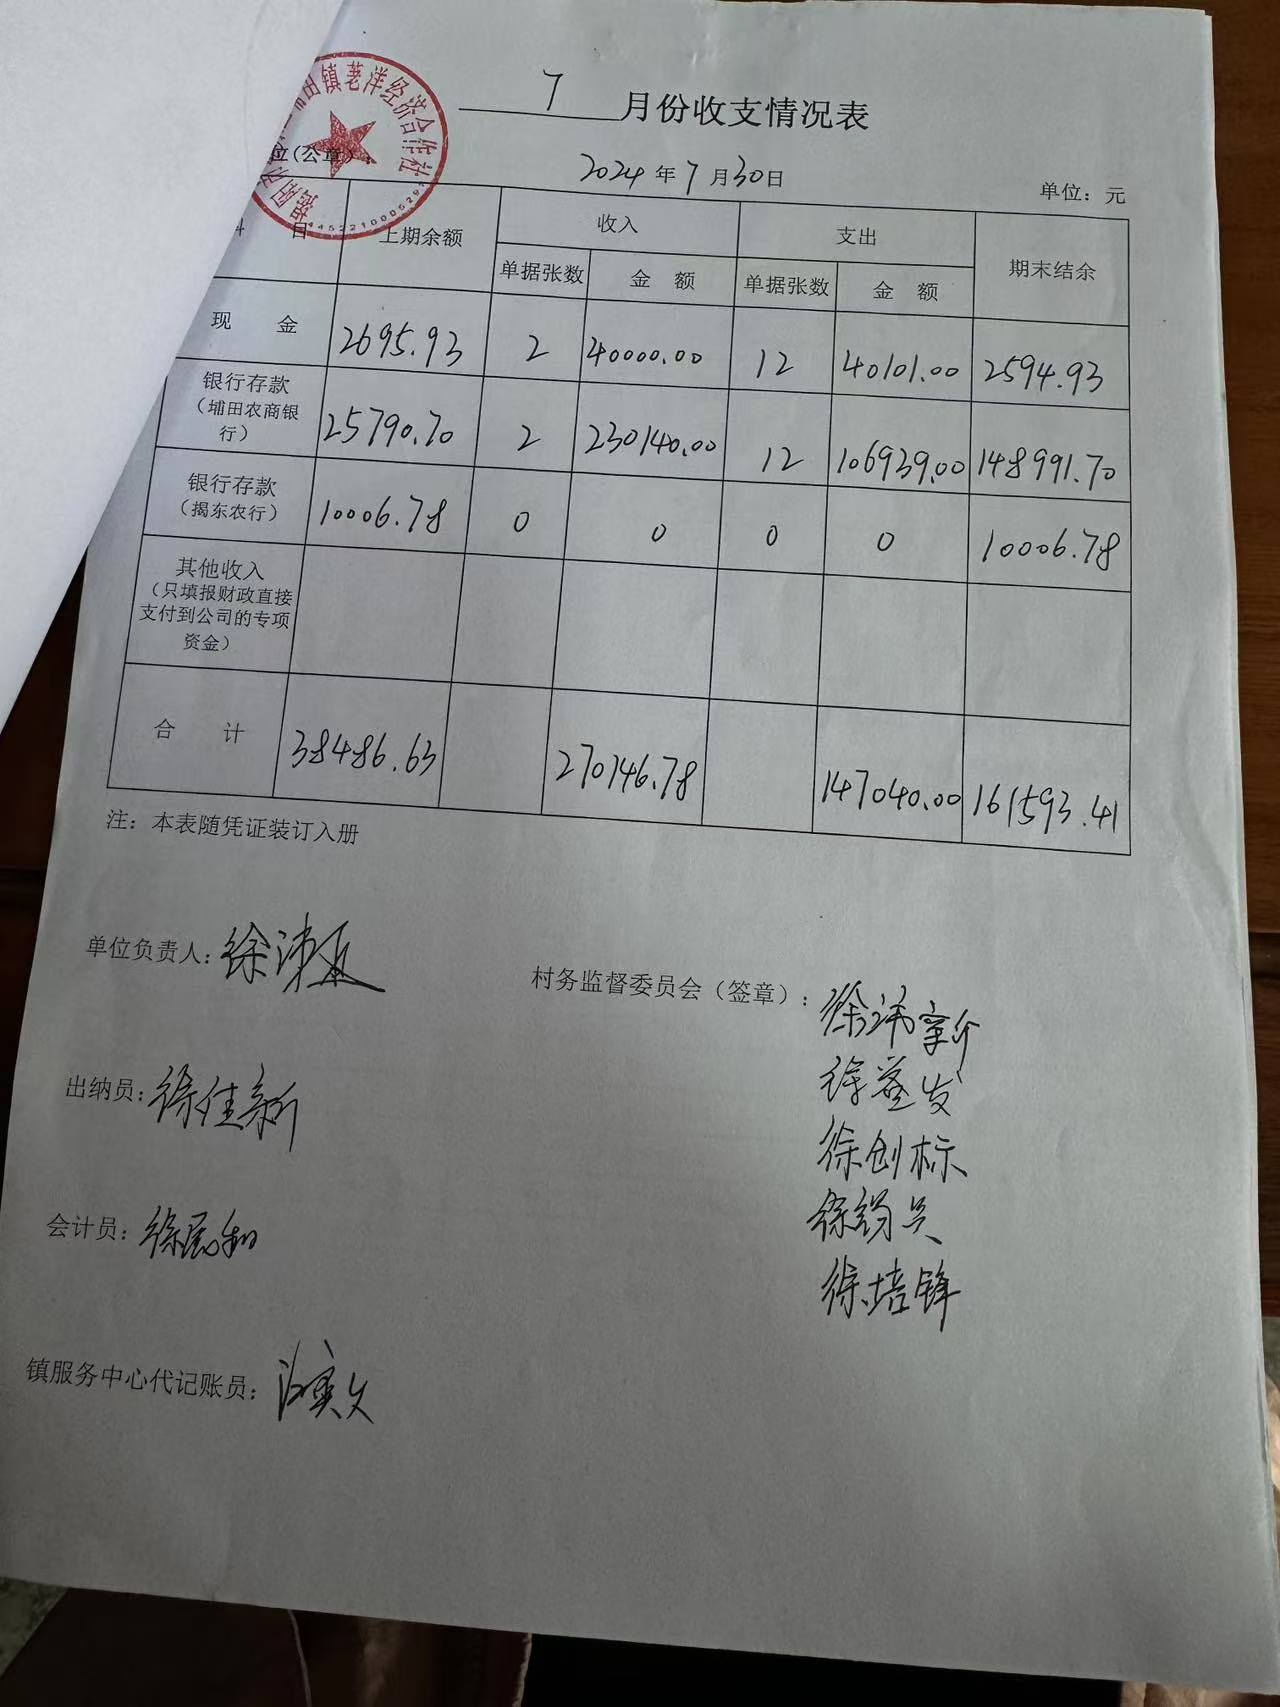 7 月份收支情况表
埔田镇荖洋经济合作社
位(公章):
2024年7月30日
单位：元
目 上期余额 收入 支出 期末结余
单据张数 金 额 单据张数 金 额
现 金 2695.93 2 40000.00 12 40101.00 2594.93
银行存款
（埔田农商银
行） 25790.70 2 230140.00 12 106939.00 148991.70
银行存款
（揭东农行） 10006.78 0 0 0 0 10006.78
其他收入
（只填报财政直接
支付到公司的专项
资金）
合 计 38486.63 270146.78 147040.00 161593.41
注：本表随凭证装订入册
单位负责人：徐
村务监督委员会（签章）：徐
徐发
徐创标
徐
徐培锋
出纳员：徐佳新
会计员：徐
镇服务中心代记账员：